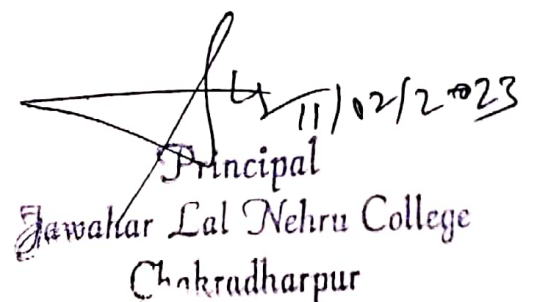 11/02/2023
Principal
Jawahar Lal Nehru College
Chakradharpur